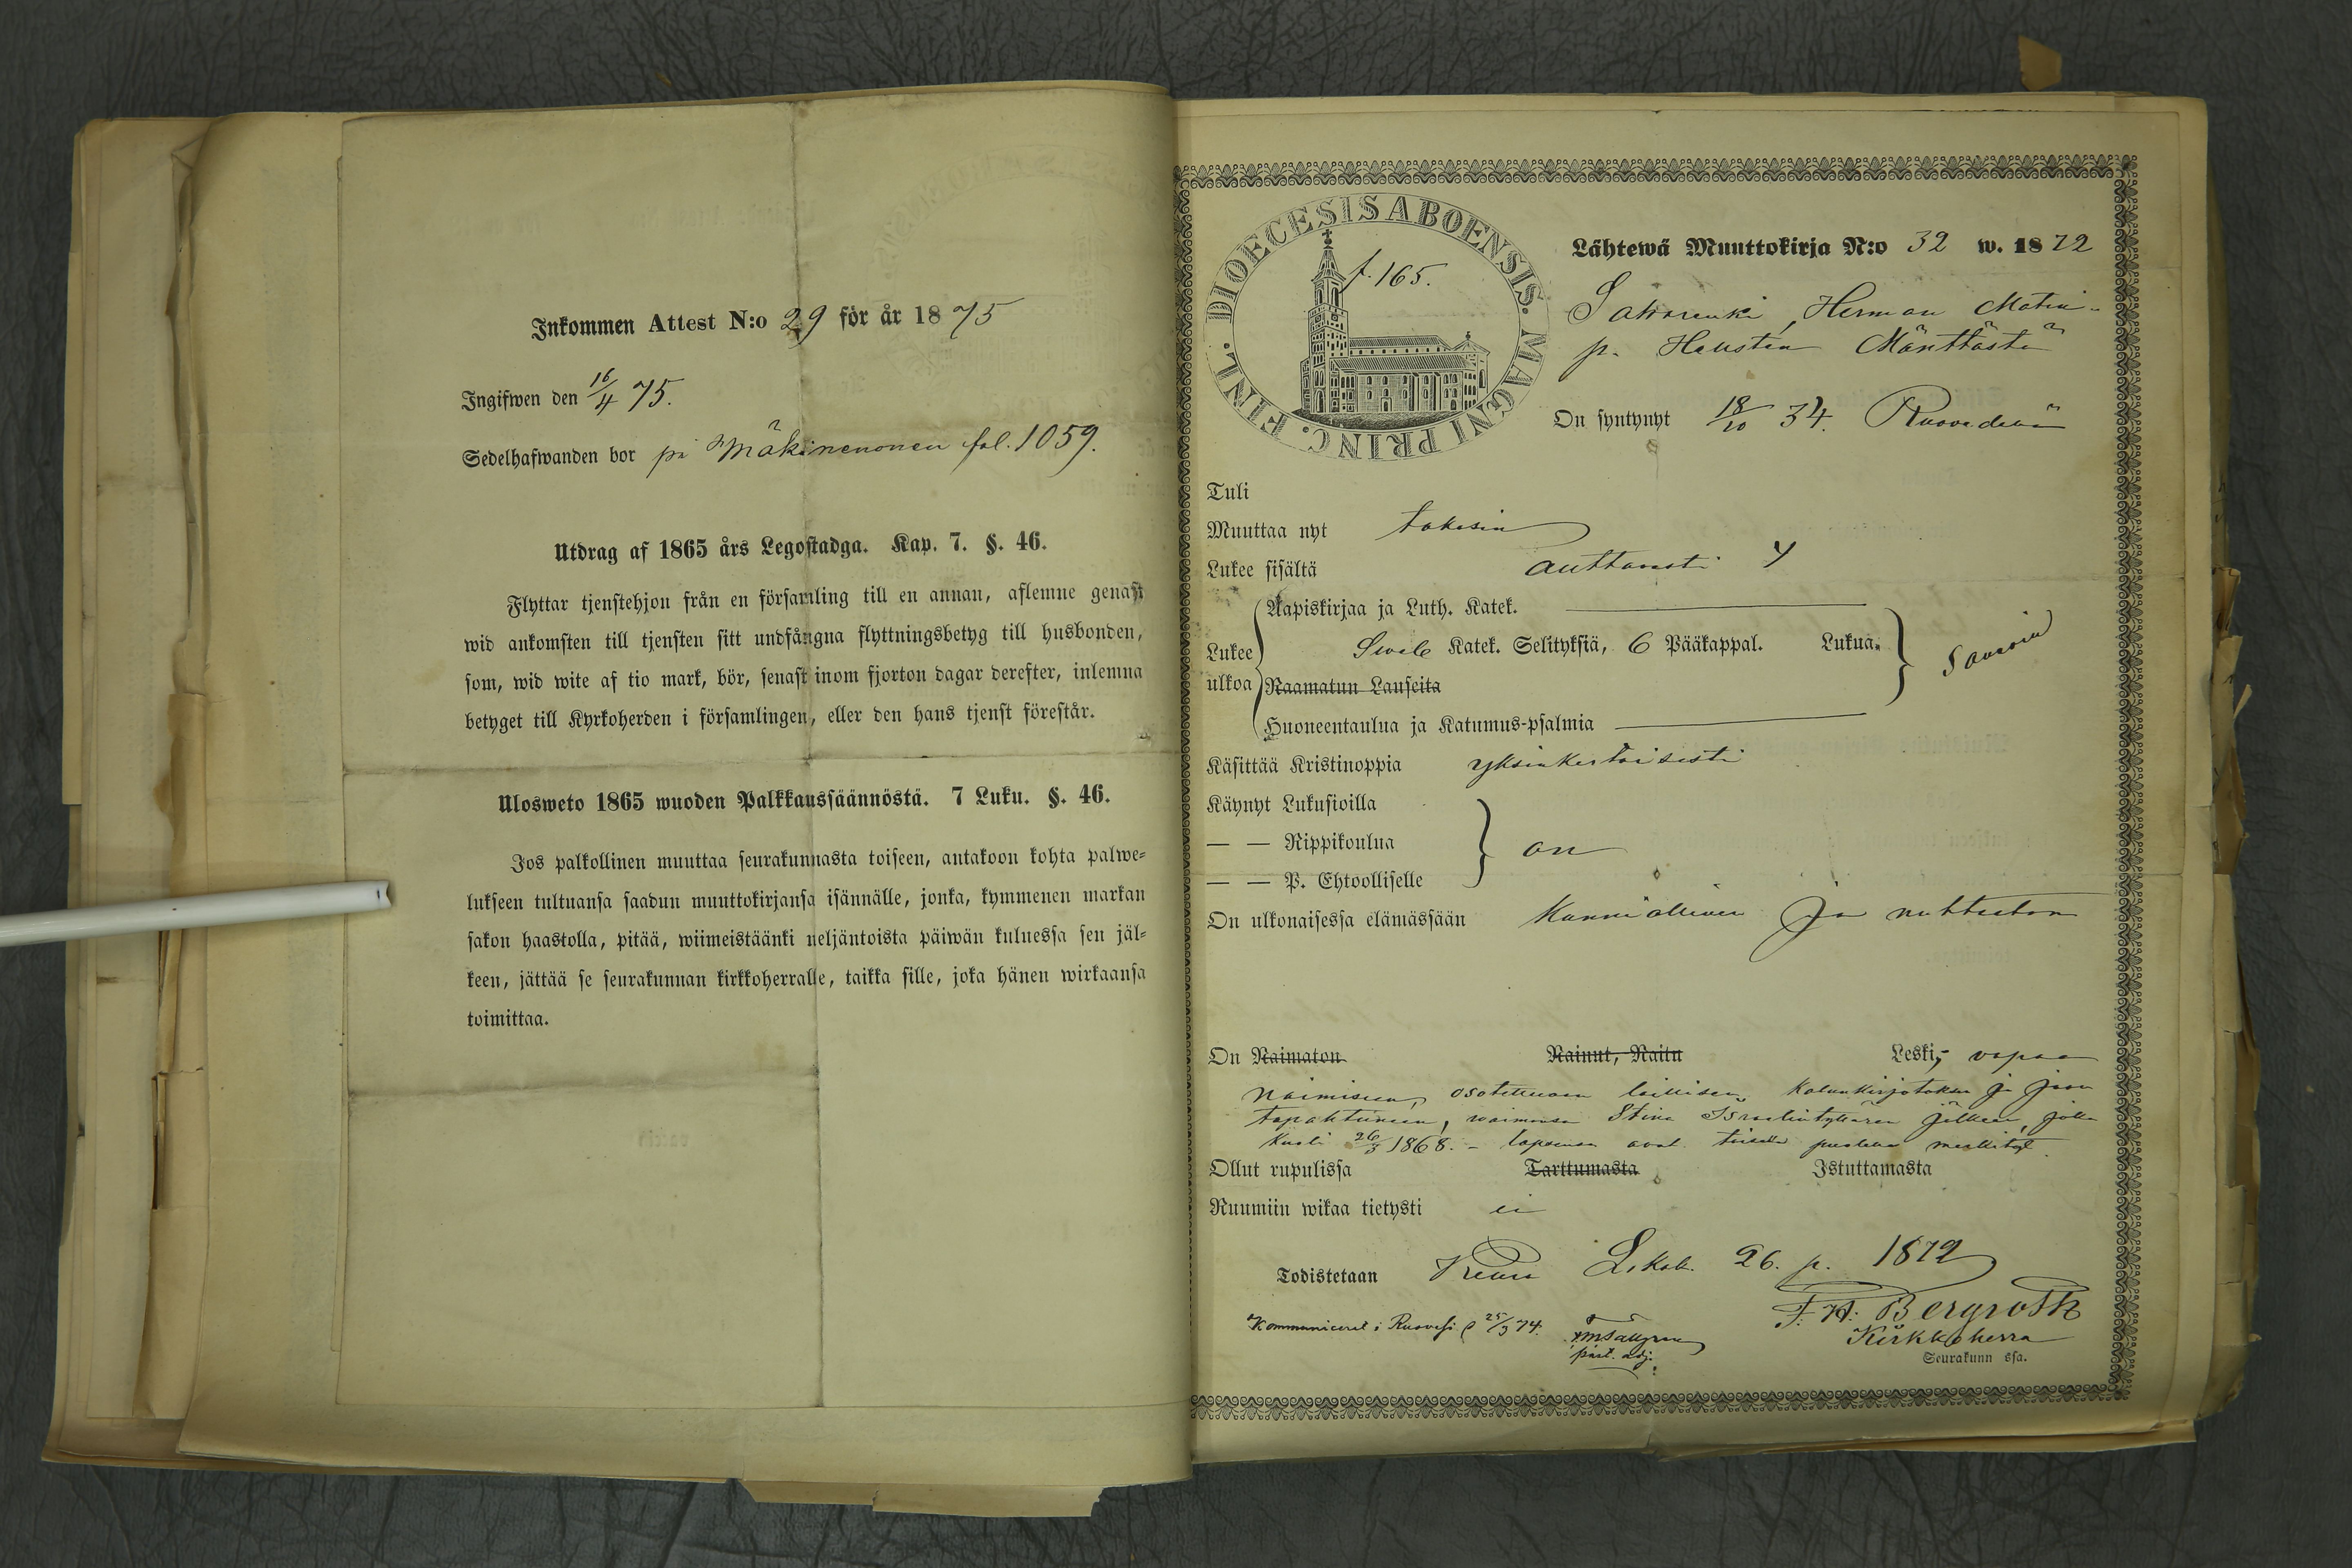 Inkommen Attest N:o 29 för år 1875
Ingifwen den 16/4 75.
Sedelhafwanden bor på Mäkinenonen fol. 1059.
Utdrag af 1865 års Legostadga. Kap. 7. §. 46.
Flyttar tjenstehjon från en församling till en annan, aflemne genast
wid ankomsten till tjensten sitt undfångna flyttningsbetyg till husbonden,
som, wid wite af tio mark, bör, senast inom fjorton dagar derefter, inlemna
betyget till Kyrkoherden i församlingen, eller den hans tjenst förestår.
Ulosweto 1865 wuoden Palkkaussäännöstä. 7 Luku. §. 46.
Jos palkollinen muuttaa seurakunnasta toiseen, antakoon kohta palwe-
lukseen tultuansa saadun muuttokirjansa isännälle, jonka, kymmenen markan
sakon haastolla, pitää, wiimeistäänki neljäntoista päiwän kuluessa sen jäl-
keen, jättää se seurakunnan kirkkoherralle, taikka sille, joka hänen wirkaansa
toimittaa.
DIOECESIS ABOENSIS. MAGNI PRINC. FINL.
f. 165.
Lähtewä Muuttokirja N:o 32 w. 1872
Herman Matin-
p. Mänttästä
On syntynyt 18/10 34. Ruovedellä
Tuli
Muuttaa nyt takasin
Lukee sisältä auttavasti y
Lukee ulkoa
Aapiskirjaa ja Luth. Katek.
Sweb Katek. Selityksiä, 6 Pääkappal. Lukua.
Raamatun Lauseita
Huoneentaulua ja Katumus-psalmia
Käsittää Kristinoppia yksinkertaisesti
Käynyt Lukusioilla
— — Rippikoulua
on
— — P. Ehtoolliselle
On ulkonaisessa elämässään kunniallinen ja nuhteeton
On Naimaton Nainut, Naitu Leski, vapaa
naimiseen, osotettuaan laillisen kalunkirjotuksen ja jaon
tapahtuneen, waimonsa Stina Israelintyttären jälkeen, joka
kuoli 26/3 1868. – lapsensa ovat toisella puolella merkityt.
Ollut rupulissa Tarttumasta Istuttamasta
Ruumiin wikaa tietysti ei
Todistetaan Keuru 26. p. 1872
F. W. Bergroth
Kirkkoherra
Seurakunn ssa.
Kommunicerat i Ruovesi d 25/3 74.
past. adj.